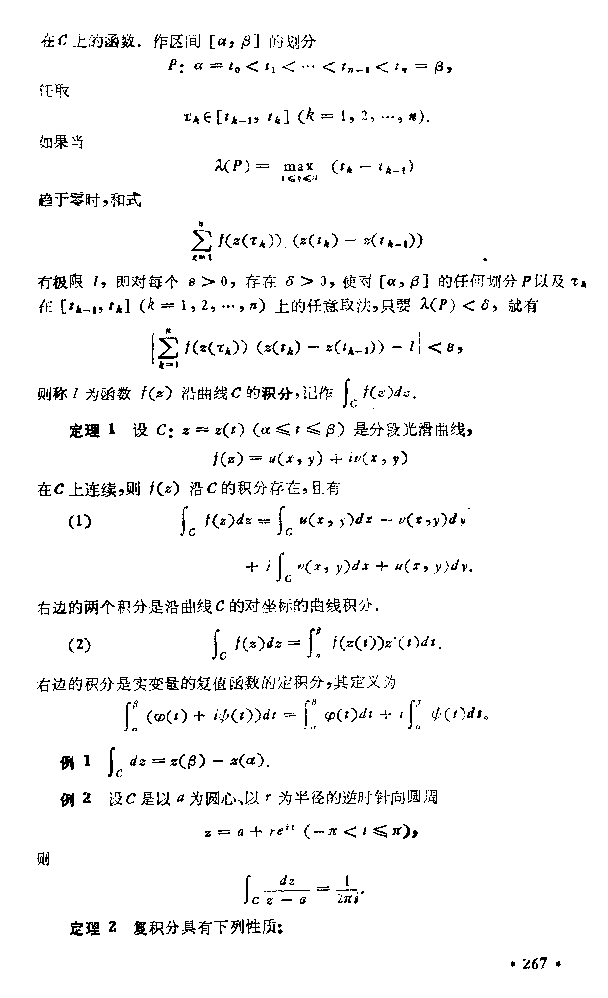 在C上的函数. 作区间 [α, β] 的划分
P: α = t₀ < t₁ < ⋯ < tₙ₋₁ < tₙ = β,
任取
τₖ∈[tₖ₋₁, tₖ] (k = 1, 2, ⋯, n).
如果当
λ(P) = max (tₖ − tₖ₋₁)
1≤k≤n
趋于零时,和式
∑ₖ₌₁ⁿ f(z(τₖ)) (z(tₖ) − z(tₖ₋₁))
有极限 I, 即对每个 ε > 0, 存在 δ > 0, 使对 [α, β] 的任何划分P以及 τₖ
在 [tₖ₋₁, tₖ] (k = 1, 2, ⋯, n) 上的任意取法,只要 λ(P) < δ, 就有
|∑ₖ₌₁ⁿ f(z(τₖ)) (z(tₖ) − z(tₖ₋₁)) − I| < ε,
则称 I 为函数 f(z) 沿曲线C的积分,记作 ∫_C f(z)dz.
定理 1 设 C: z = z(t) (α ≤ t ≤ β) 是分段光滑曲线,
f(z) = u(x, y) + iv(x, y)
在C上连续,则 f(z) 沿C的积分存在,且有
(1) ∫_C f(z)dz = ∫_C u(x, y)dx − v(x,y)dy
+ i∫_C v(x, y)dx + u(x, y)dy.
右边的两个积分是沿曲线C的对坐标的曲线积分.
(2) ∫_C f(z)dz = ∫_α^β f(z(t))z′(t)dt.
右边的积分是实变量的复值函数的定积分,其定义为
∫_α^β (φ(t) + iψ(t))dt = ∫_α^β φ(t)dt + i∫_α^β ψ(t)dt。
例 1 ∫_C dz = z(β) − z(α).
例 2 设C是以 a 为圆心、以 r 为半径的逆时针向圆周
z = a + re^{it} (−π < t ≤ π),
则
∫_C dz/(z − a) = 1/(2πi).
定理 2 复积分具有下列性质:
• 267 •